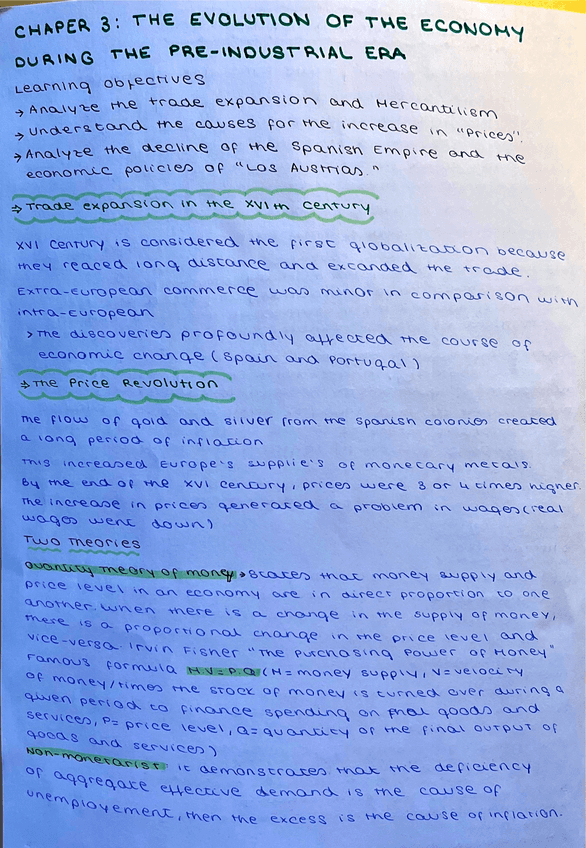 CHAPER 3: THE EVOLUTION OF THE ECONOMY
DURING THE PRE-INDUSTRIAL ERA
Learning objectives
→ Analyze the trade expansion and Mercantilism
→ Understand the causes for the increase in "Prices".
→ Analyze the decline of the Spanish Empire and the
economic policies of "Los Austrias."
⇒ Trade expansion in the XVIth century
XVI century is considered the first globalization because
they reaced long distance and excanded the trade.
Extra-european commerce was minor in comparison with
intra-european
> The discoveries profoundly affected the course of
economic change (Spain and Portugal)
⇒ The Price Revolution
The flow of gold and silver from the spanish colonies created
a long period of inflation
This increased Europe's supplie's of monecary metals.
By the end of the XVI century, prices were 3 or 4 times higher.
The increase in prices generated a problem in wages (real
wages went down)
Two Theories
Quantity theory of money → States that money supply and
price level in an economy are in direct proportion to one
another. When there is a change in the supply of money,
there is a proportional change in the price level and
vice-versa. Irvin Fisher "The Purchasing Power of Money"
Famous formula M.V=P.Q (M= money supply, V= velocity
of money/times the stock of money is turned over during a
given period to finance spending on final goods and
services, P= price level, Q= quantity of the final output of
goods and services)
Non-monetarist it demonstrates that the deficiency
of aggregate effective demand is the cause of
unemployement, then the excess is the cause of inflation.